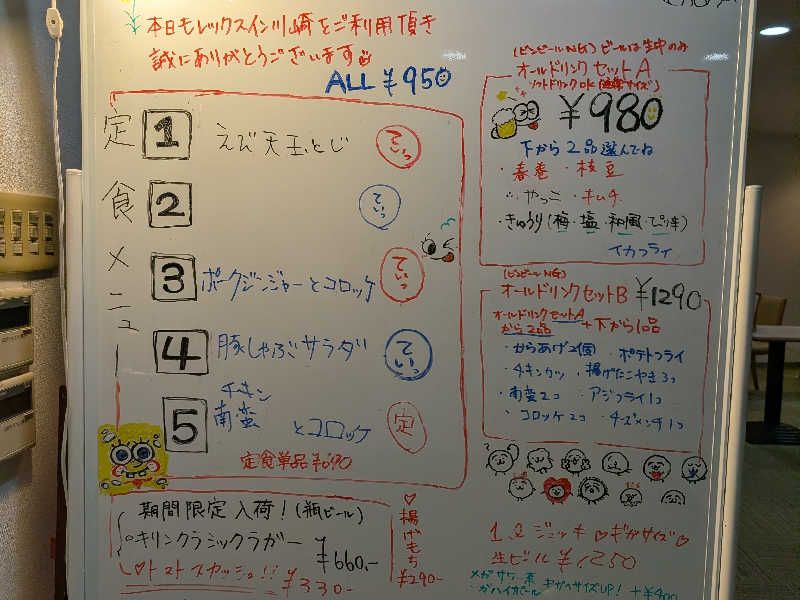 本日もレックスイン川崎をご利用頂き
誠にありがとうございます
ALL ¥950
定食メニュー
1 えび天玉とじ ていっ
2 ていっ
3 ポークジンジャーとコロッケ ていっ
4 豚しゃぶサラダ ていっ
5 チキン南蛮とコロッケ 定
定食単品¥690
期間限定入荷!(瓶ビール)
キリンクラシックラガー ¥660,-
トマトスカッシュ!! ¥330-
揚げもち ¥290-
(ビンビールNG) ビールは生中のみ
オールドリンクセットA
ソフトドリンクOK(通常サイズ)
¥980
下から2品選んでね
・春巻 ・枝豆
・やっこ ・キムチ
・きゅうり(梅・塩・和風・ピリ辛)
イカフライ
(ビンビールNG)
オールドリンクセットB ¥1290
オールドリンクセットAから2品 +下から1品
・からあげ2個 ・ポテトフライ
・チキンカツ ・揚げたこやき3コ
・南蛮2コ ・アジフライ1コ
・コロッケ2コ ・チーズメンチ1コ
ジョッキ ギガサイズ
生ビール ¥1250
メガサワー系
ギガサイズUP! +¥400